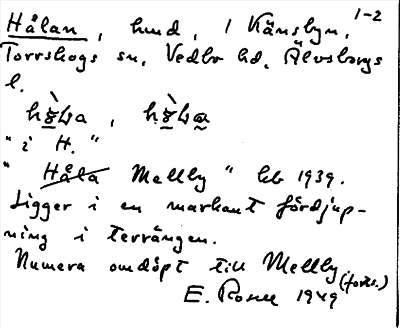 Hålan, hmd, i Känsbyn, 1-2
Torrskogs sn, Vedbo hd, Älvsborgs
l.
" i H. "
" Håla Mellby " lek 1939.
Ligger i en markant fördjup-
ning i terrängen.
Numera omdöpt till Mellby (forts.)
E. Rosell 1949